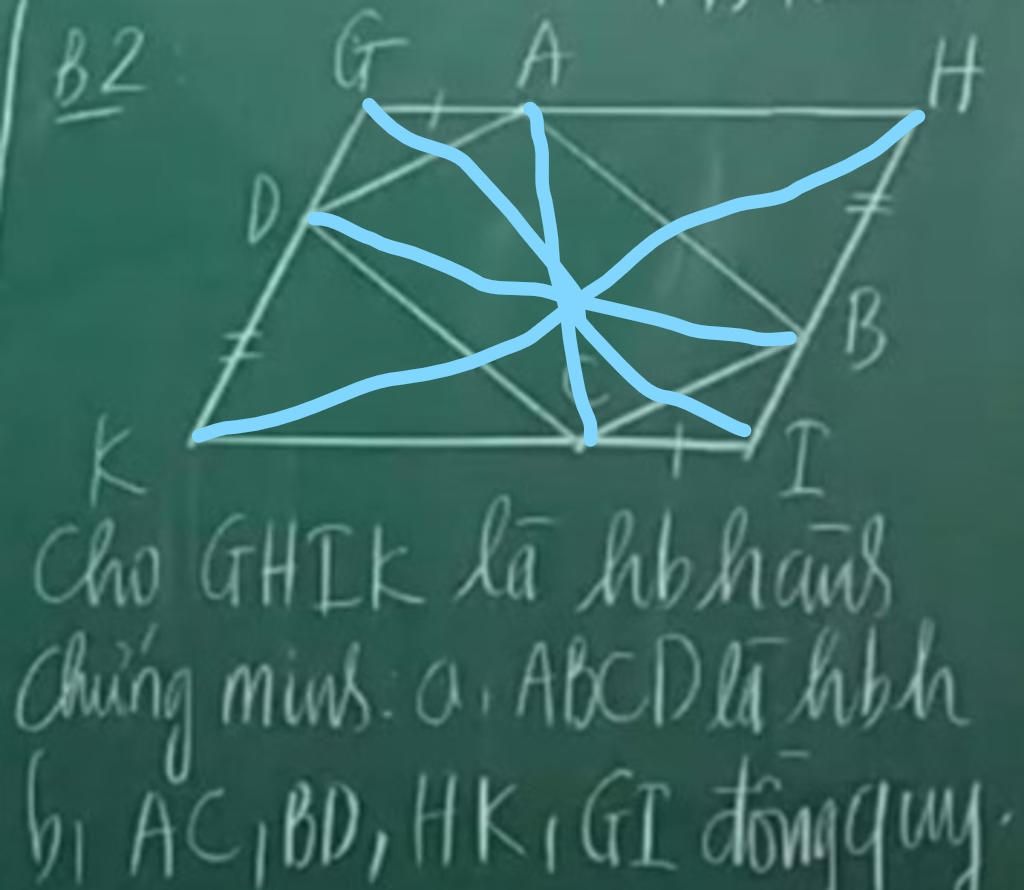 B2
G A H
D
B
C
K I
Cho GHIK là hbhành
Chứng minh: a, ABCD là hbh
b, AC, BD, HK, GI đồng quy.